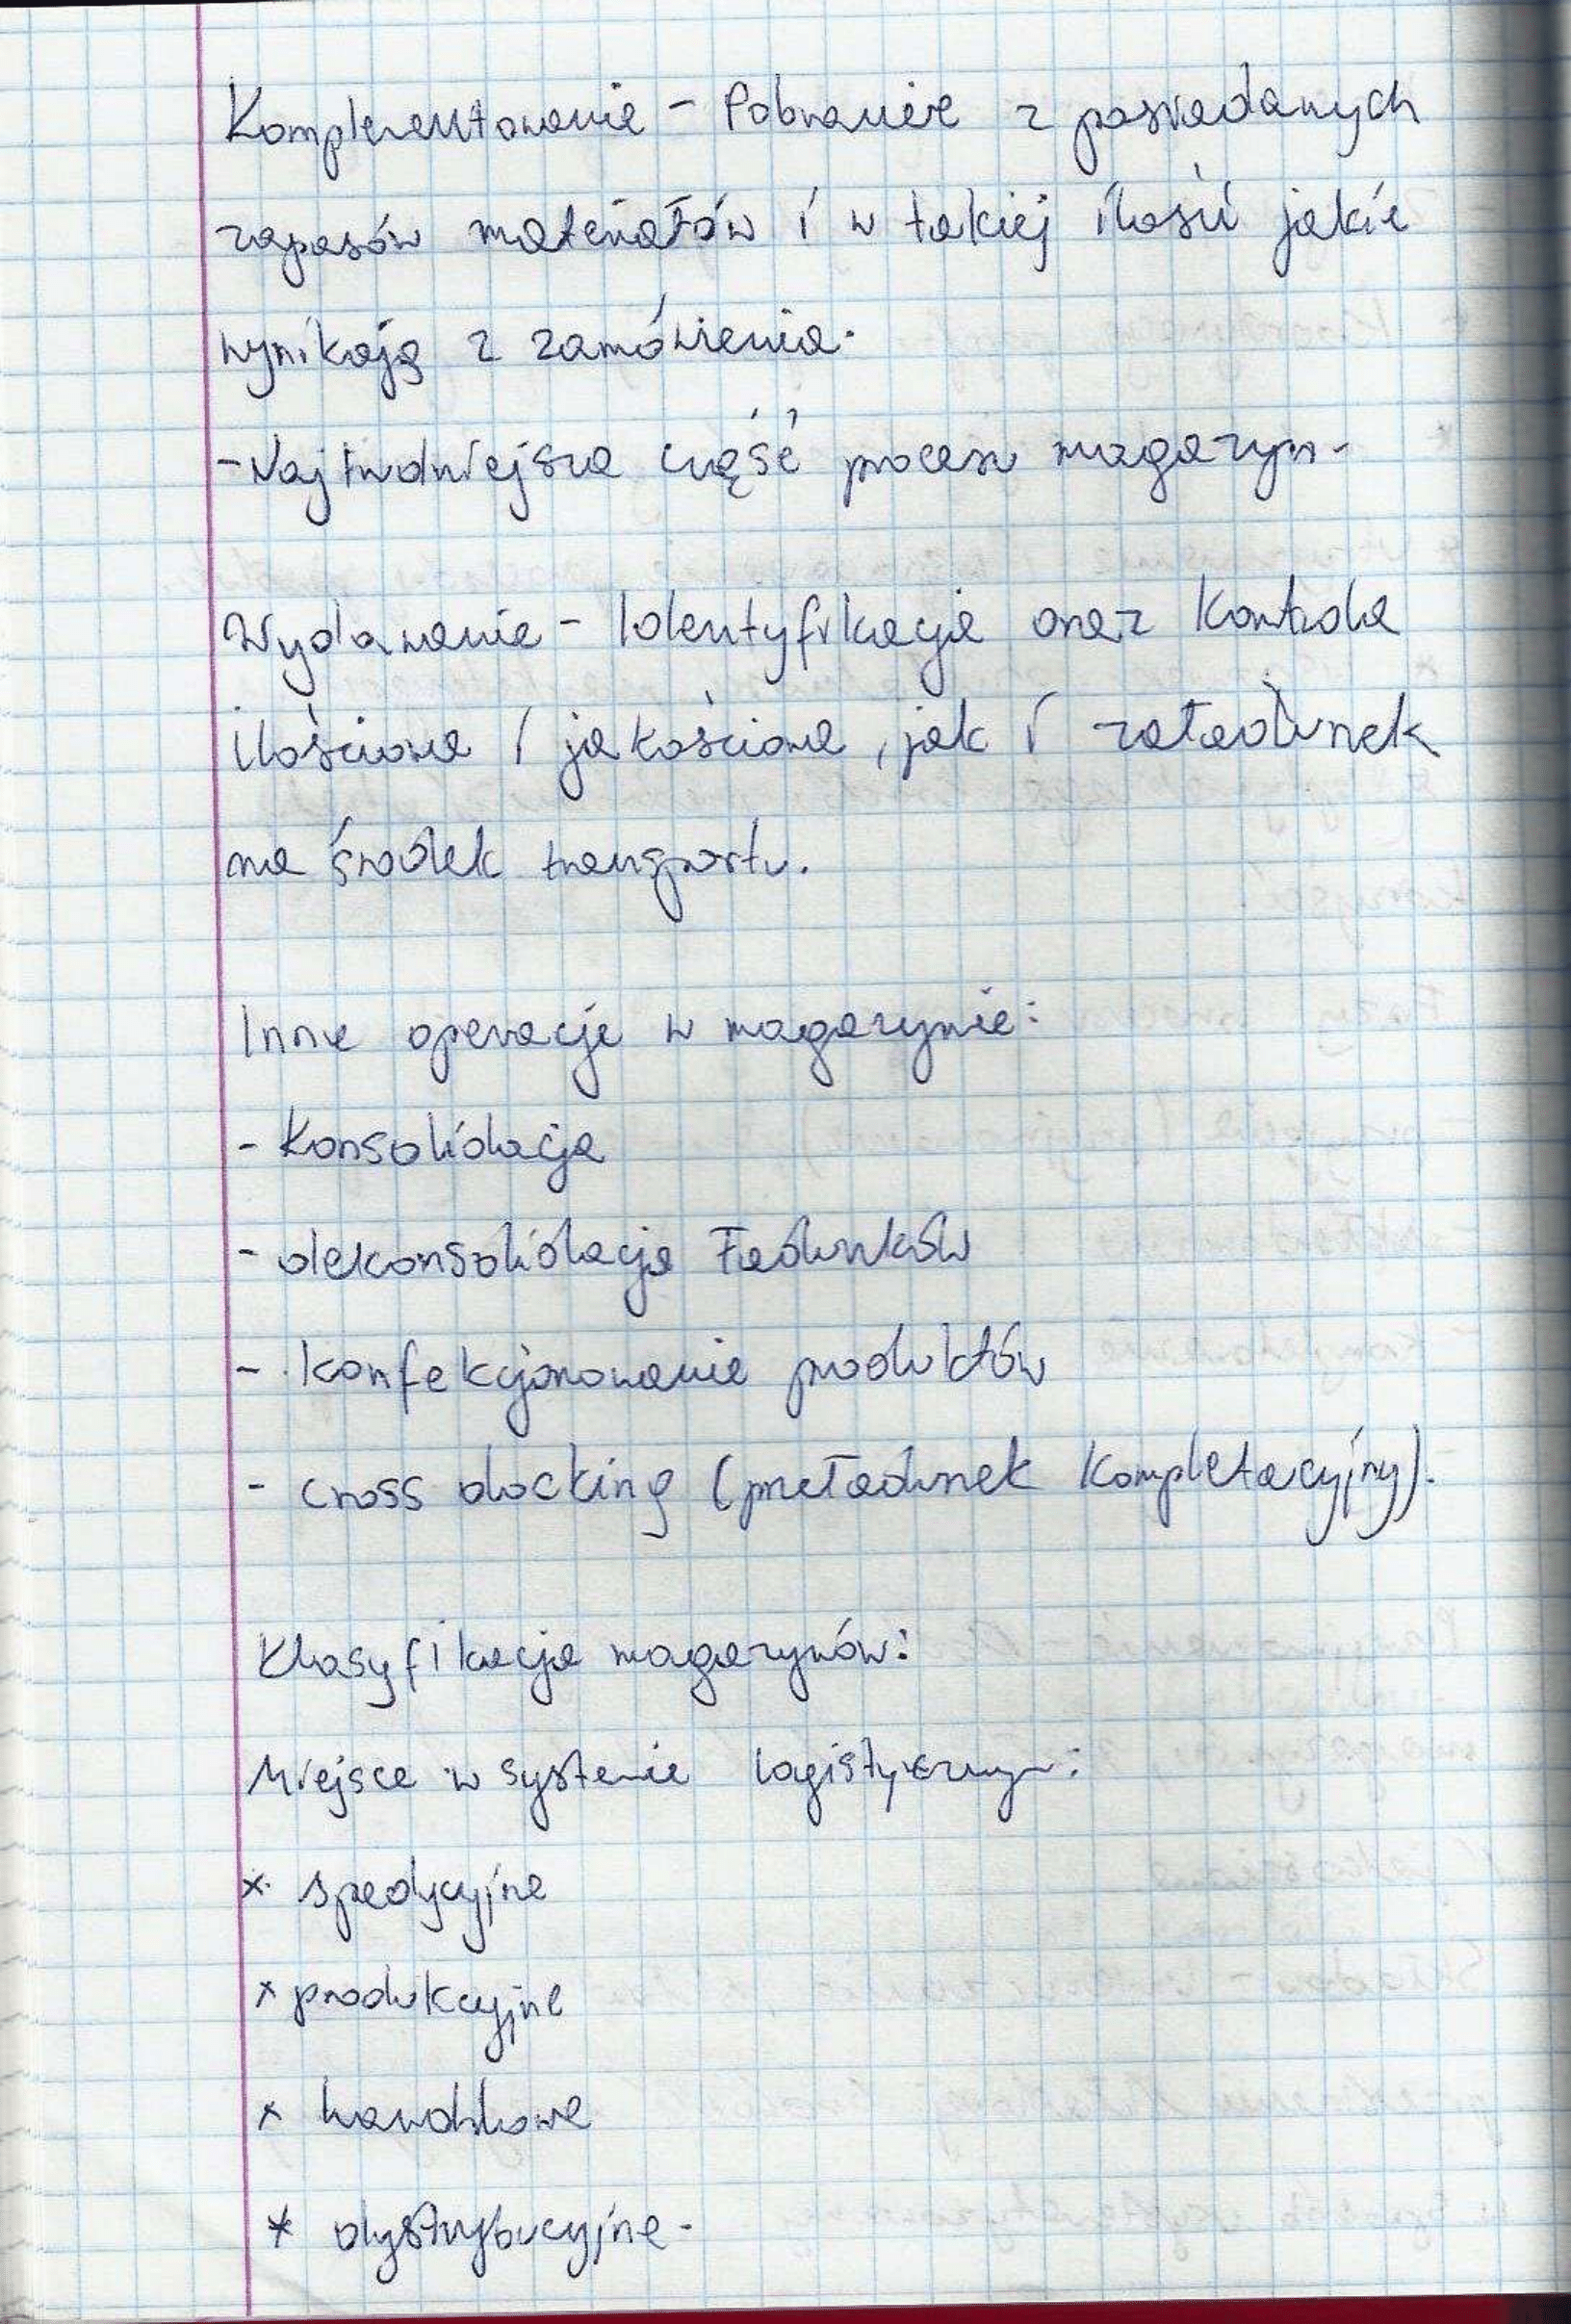 Komplementowanie - Pobranie z posiadanych
zapasów materiałów i w takiej ilości jakie
wynikają z zamówienia.
- Najtrudniejsza część procesu magazyn.
Wydawanie - Identyfikacja oraz kontrola
ilościowa i jakościowa, jak i załadunek
na środek transportu.
Inne operacje w magazynie:
- Konsolidacja
- dekonsolidacja ładunków
- konfekcjonowanie produktów
- cross docking (przeładunek kompletacyjny).
Klasyfikacja magazynów:
Miejsce w systemie logistycznym:
* spedycyjne
* produkcyjne
* handlowe
* dystrybucyjne.